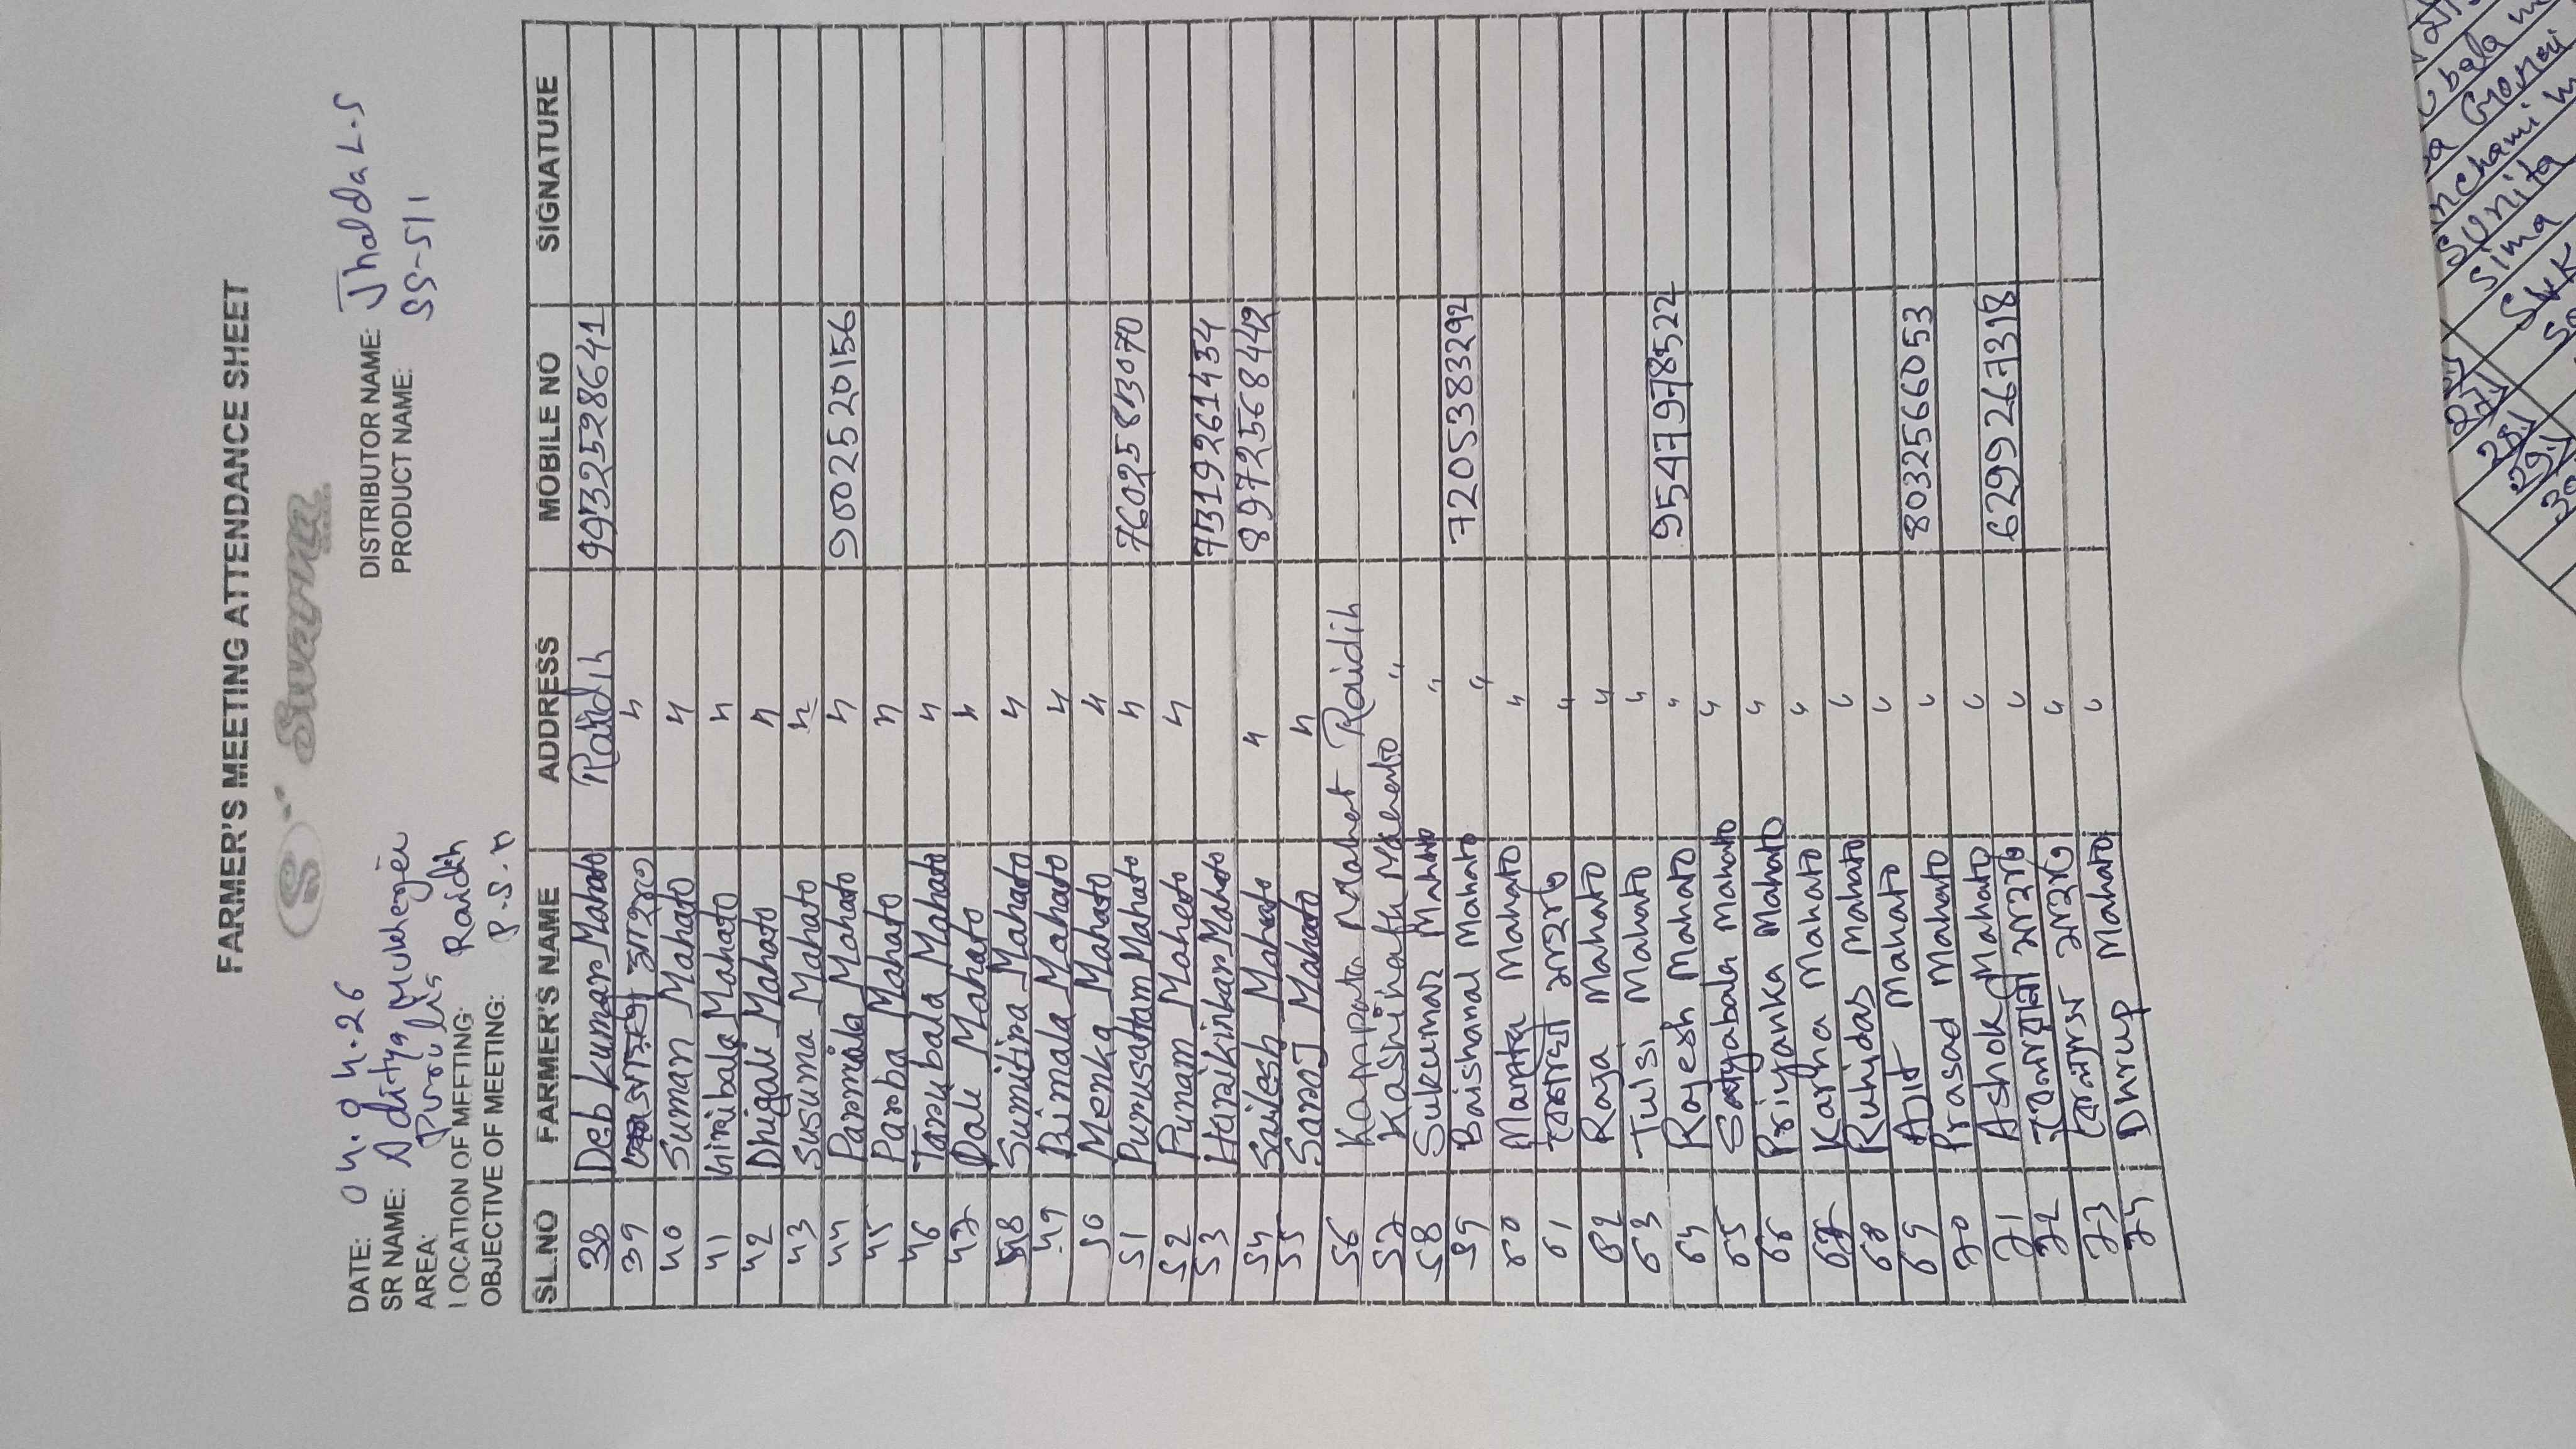 FARMER'S MEETING ATTENDANCE SHEET
S Suvarna
DATE: 04.04.26
SR NAME: Aditya Mukherjee DISTRIBUTOR NAME: Jhalda L.S
AREA: Purulia PRODUCT NAME: SS-511
LOCATION OF MEETING: Raidih
OBJECTIVE OF MEETING: P.S.D
SL.NO FARMER'S NAME ADDRESS MOBILE NO SIGNATURE
38 Deb kumar Mahato Raidih 9932528641
39 মাহাতো "
40 Suman Mahato "
41 Giribala Mahato "
42 Dhigali Mahato "
43 Susuma Mahato "
44 Parmila Mahato " 9002520156
45 Paroba Mahato "
46 Tarubala Mahato "
47 Dali Mahato "
48 Sumitira Mahato "
49 Bimala Mahato "
50 Menka Mahato "
51 Purusattam Mahato " 7602583070
52 Punam Mahato "
53 Harikinkar Mahato 7319261434
54 Sailesh Mahato " 8972568442
55 Saroj Mahato "
56 Raidih
57 Kashinath Mahato "
58 Sukumar Mahato "
59 Baishanal Mahato " 7205383292
60 Mamta Mahato "
61 মাহাত "
62 Raja Mahato "
63 Tulsi Mahato "
64 Rajesh Mahato " 9547978522
65 Satyabala Mahato "
66 Priyanka Mahato "
67 Karna Mahato "
68 Ruhidas Mahato "
69 Ajit Mahato "
70 Prasad Mahato " 8032566053
71 Ashok Mahato "
72 মাহাত " 6299267318
73 মাহাত "
74 Dhrup Mahato "
bala
nchami
Sunita
Sima
28
29
30